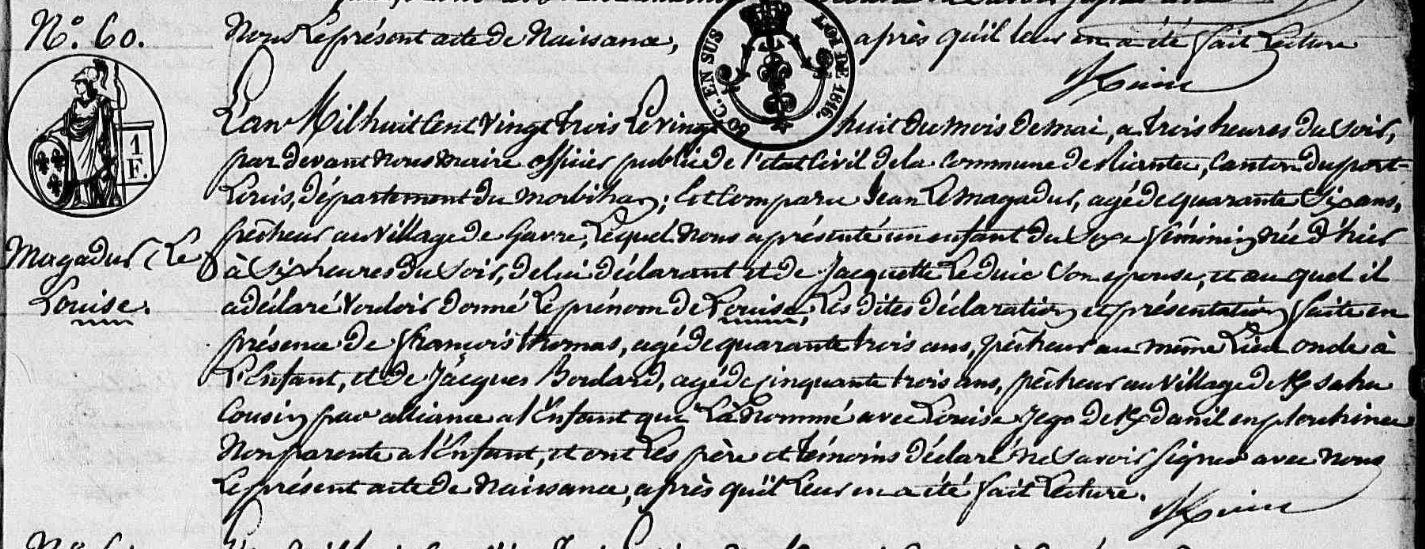 N.º 60.
Nous le présent acte de Naissance, après qu'il leur en a été fait Lecture
50 C. EN SUS LOI DE 1816.
1 F.
L'an Mil huit Cent Vingt trois Le vingt huit du mois de mai, a trois heures du soir,
par devant nous maire officier public de l'état Civil de la Commune de Riantec, Canton du port-
Louis, département du morbihan; Est Comparu Jean Le magadur, agé de quarante Six ans,
pêcheur au village de Gavre, Lequel Nous a présenté un enfant du Sexe féminin née d'hier
Magadur (Le
à Six heures du soir, de lui déclarant et de Jacquette Le duic Son epouse, et au quel il
Louise.
a déclaré Vouloir donné Le prénom de Louise, Les dites déclaration et présentation faite en
présence de françois thomas, agé de quarante trois ans, pêcheur au même Lieu oncle à
L'Enfant, et de Jacques Boulard, agé de cinquante trois ans, pêcheur au village de
Cousin par alliance a l'Enfant que L'a Nommé avec Louise Jego de en
Non parente a l'Enfant, et ont Les père et témoins déclaré ne Savoir Signer avec nous
Le présent acte de Naissance, après qu'il Leur en a été fait Lecture.